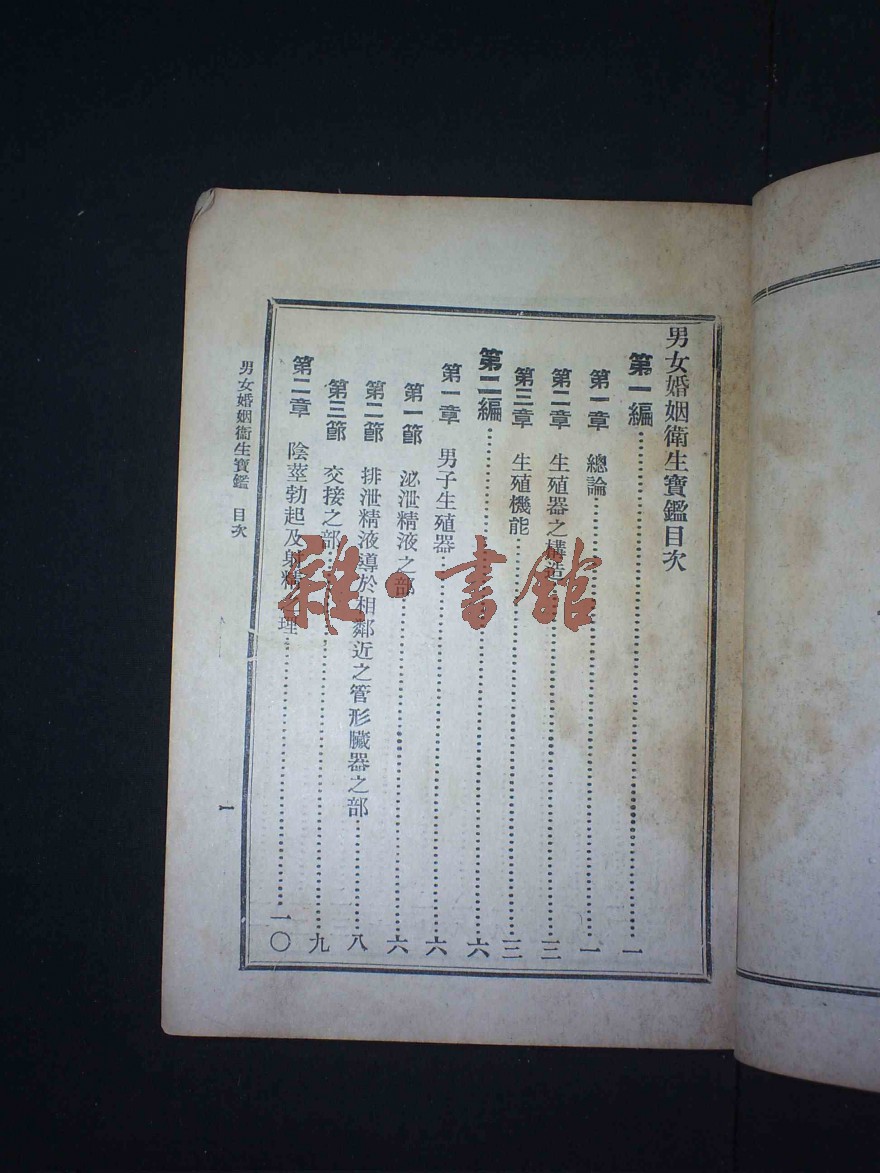 男女婚姻衛生寶鑑目次
第一編……一
第一章 總論……一
第二章 生殖器之構造……三
第三章 生殖機能……三
第二編……六
第一章 男子生殖器……六
第一節 泌泄精液之部……六
第二節 排泄精液導於相鄰近之管形臟器之部……八
第三節 交接之部……九
第二章 陰莖勃起及射精 理……一〇
男女婚姻衛生寶鑑 目次
一
雜·書館